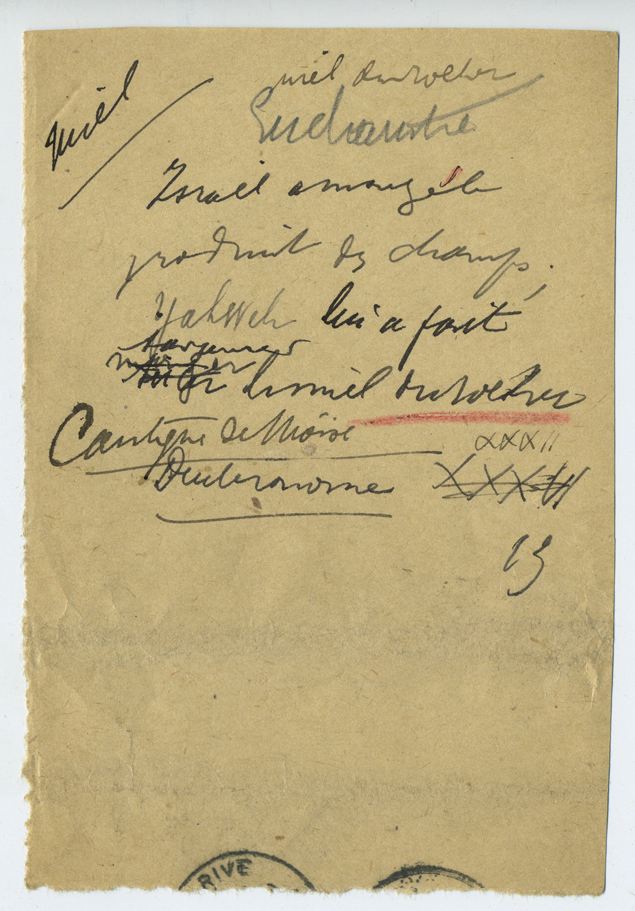 miel
miel du rocher
Eucharistie
Israël a mangé le
produit des champs,
Yahweh lui a fait
le miel du rocher
Cantique de Moïse
XXXII
Deutéronome
XXXII
13
RIVE